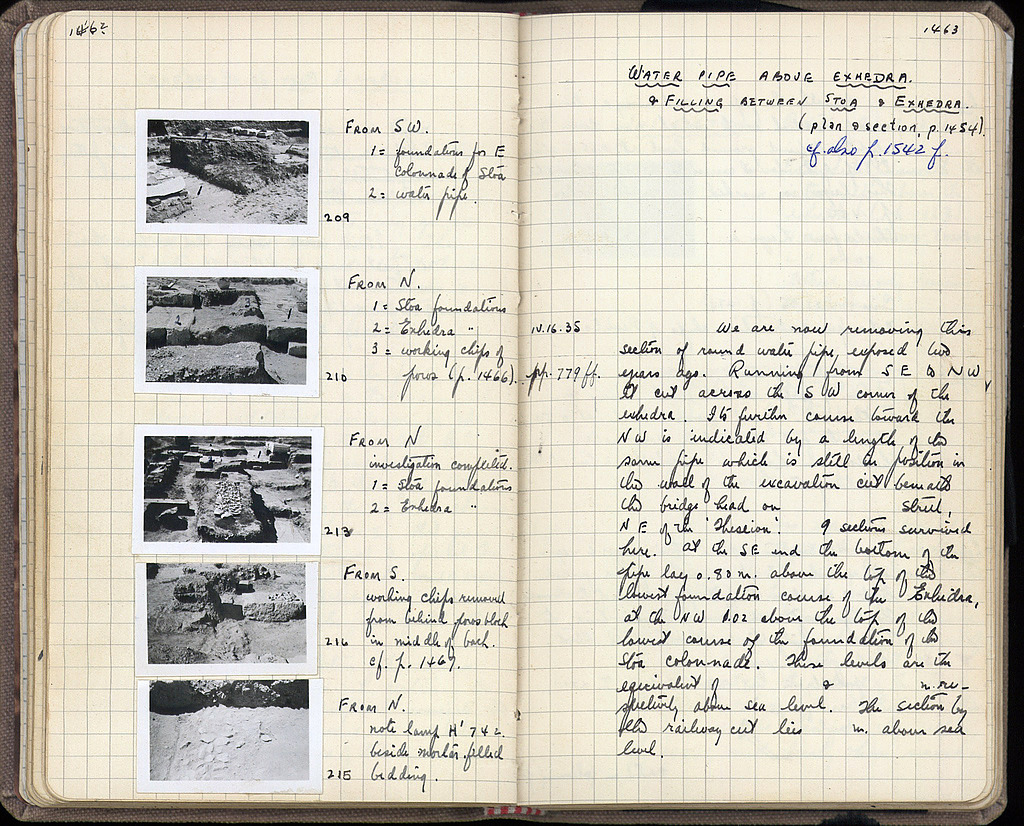 1462
From SW.
1 = foundations for E
colonnade of Stoa
2 = water pipe.
209
From N.
1 = Stoa foundations
2 = Exhedra "
3 = working chips of
poros (p. 1466).
210
From N
investigation completed.
1 = Stoa foundations
2 = Exhedra "
213
From S.
working chips removed
from behind poros block
in middle of back.
cf. p. 1467.
216
From N.
note lamp H' 742
beside mortar-filled
bedding.
215
1463
Water pipe above Exhedra.
& Filling between Stoa & Exhedra.
(plan & section, p. 1454)
cf. also p. 1542 f.
IV.16.35
We are now removing this
section of round water pipe, exposed two
pp. 779 ff.
years ago. Running from SE to NW
it cut across the SW corner of the
exhedra. Its further course toward the
NW is indicated by a length of the
same pipe which is still in position in
the wall of the excavation cut beneath
the bridge head on street,
NE of the 'Theseion'. 9 sections survived
here. At the SE end the bottom of the
pipe lay 0.80 m. above the top of the
lowest foundation course of the Exhedra,
at the NW 0.02 above the top of the
lowest course of the foundation of the
Stoa colonnade. These levels are the
equivalent of & m. re-
spectively above sea level. The section by
the railway cut lies m. above sea
level.